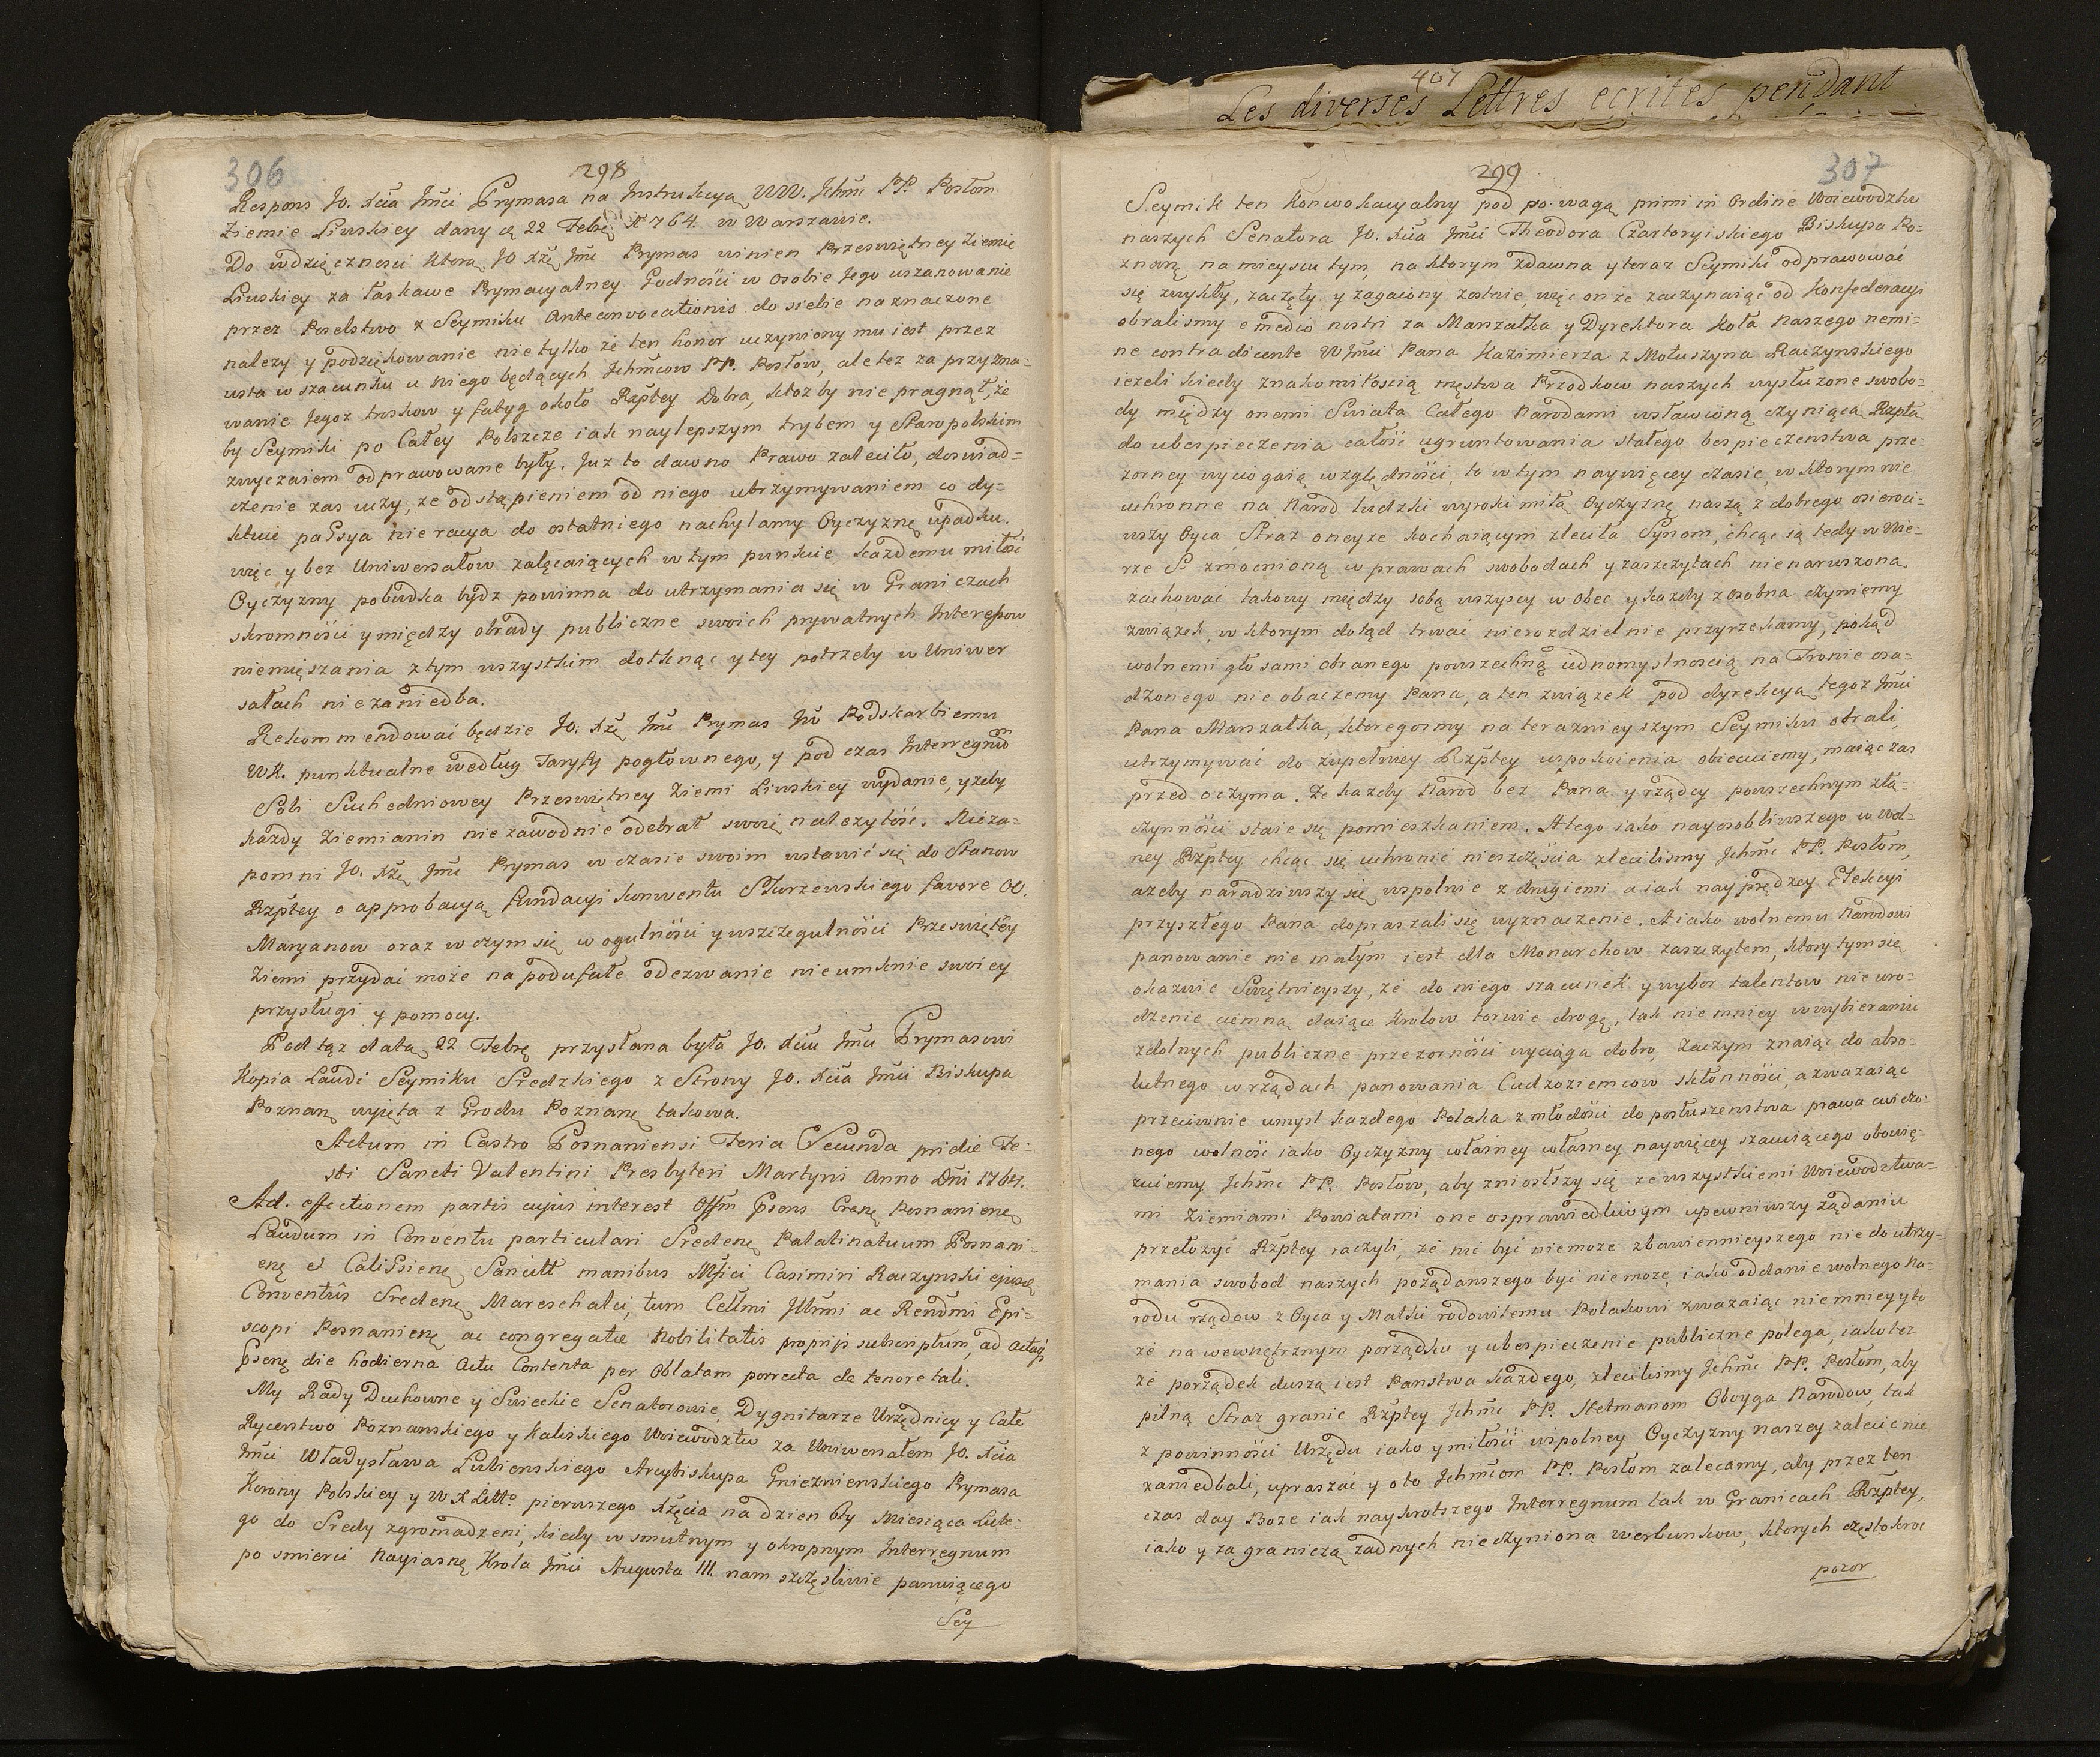 407
Les diverses Lettres ecrites pendant
306
298
Respons Jo. Xcia Jmci Prymasa na Instrukcyą WW. Ichmc PP. Posłom
Ziemie Liwskiey dany d. 22 Febrę 1764. w Warszawie.
Do wdzięcznosci ktorą JO Xżę Jmc Prymas winien Przeswiętney Ziemie
Liwskiey za łaskawe Prymacyalney Godności w osobie Jego uszanowanie
przez Poselstwo z Seymiku Anteconvocationis do siebie naznaczone
nalezy y podziękowanie nie tylko że ten honor uczyniony mu iest przez
usta w szacunku u niego będących Ichmcow PP. Posłow, ale tez za przyzna-
wanie Jegoż troskow y fatyg około Rzptey Dobra, ktoz by nie pragnął, że
by Seymiki po Całey Polszcze iak naylepszym trybem y Staropolskim
zwyczaiem odprawowane były. Juz to dawno Prawo zaleciło, doswiad-
czenie zas uczy, ze odstąpieniem od niego utrzymywaniem co dy-
ktuie passya nie racya do ostatniego nachylamy Oyczyznę upadku.
więc y bez Uniwersałow zalecaiących w tym punkcie kazdemu miłość
Oyczyzny pobudka bydz powinna do utrzymania się w Graniczach
skromności y między obrady publiczne swoich prywatnych Interessow
niemięszania z tym wszystkim dotknąc y tey potrzeby w Uniwer
sałach nie zaniedba.
Rekommendować będzie Jo. Xżę Jmc Prymas Jw Podskarbiemu
WK. punktualne według Taryfy pogłownego, y pod czas Interregnum
Soli Suchedniowey Przeswiętney Ziemi Liwskiey wydanie, y zeby
kazdy Ziemianin nie zawodnie odebrał swoię nalezytość. Nieza-
pomni Jo. Xżę Jmc Prymas w czasie swoim wstawić się do Stanow
Rzptey o approbacyą fundacyi konwentu Skorzewskiego favore OO.
Maryanow oraz w czym się w ogulności y wszczegulności Przeswiętey
Ziemi przydać może na podufałe odezwanie nieumknie swoiey
przysługi y pomocy.
Pod tąz datą 22 Febrę przysłana była Jo. Xciu Jmci Prymasowi
Kopia Laudi Seymiku Sredzkiego z Strony Jo. Xcia Jmci Biskupa
Poznanę wyięta z Grodu Poznanę takowa.
Actum in Castro Posnaniensi Feria Secunda pridie Fe-
sti Sancti Valentini Presbyteri Martyris Anno Dni 1764.
Ad. affectionem partis cujus interest Offm Gsens Crenę Posnaniene
Laudum in Conventu particulari Sredenę Palatinatuum Posnani-
enę et Calissienę Sancitt manibus Mfici Casimiri Raczynski ejusdę
Conventûs Sredenę Mareschalci, tum Cellmi Jllmi ac Rendmi Epi-
scopi Posnanienę ac congregatæ Nobilitatis proprijs subscriptum, ad acta
Gsenę die hodierna Actu Contenta per Oblatam porrecta de tenore tali.
My Rady Duchowne y Swieckie Senatorowie, Dygnitarze Urzędnicy y Całe
Rycerstwo Poznanskiego y Kaliskiego Woiewodztw za Uniwersałem Jo. Xcia
Jmci Władysława Łubienskiego Arcybiskupa Gnieznienskiego Prymasa
Korony Polskiey y W X Litto pierwszego Xżęcia na dzien 6ty Miesiąca Lute-
go do Sredy zgromadzeni, kiedy w smutnym y okropnym Interregnum
po smierci Nayiasnę Krola Jmci Augusta III. nam szczęsliwie panuiącego
Sey
299
307
Seymik ten Konwokacyalny pod powagą primi in Ordine Woiewodztw
naszych Senatora Jo. Xcia Jmci Theodora Czartoryiskiego Biskupa Po-
znanę na mieyscu tym, na ktorym zdawna y teraz Seymiki odprawować
się zwykły, zaczęty y zagaiony zostaie, więc on że zaczynaiąc od Konfederacyi
obralismy e medio nostri za Marszałka y Dyrektora Koła Naszego nemi-
ne contradicente W Jmci Pana Kazimierza z Małuszyna Raczynskiego
iezeli kiedy znakomitoscią męstwa Przodkow naszych wysłuzone swobo-
dy między onemi Swiata Całego Narodami wsławioną czyniąca Rzpta
do ubespieczenia całość ugruntowania stałego bespieczenstwa prze-
zorney wyciągaią względności, to w tym naywięcey czasie, w ktorym nie
uchronne na Narod ludzki wyroki miłą Oyczyznę naszą z dobrego osieroci-
wszy Oyca, Straz oneyze kochaiącym zleciła Synom, chcąc ią tedy w Wie-
rze S. zmocnioną w prawach swobodach y zaszczytach nienaruszoną
zachować takowy między sobą wszyscy w obec y kazdy zosobna czyniemy
związek, w ktorym dotąd trwać nierozdzielnie przyrzekamy, pokąd
wolnemi głosami obranego powszechną iednomyslnoscią na Tronie osa-
dzonego nie obaczemy Pana, a ten związek pod dyrekcyą tegoz Jmci
Pana Marszałka, ktoregosmy na teraznieyszym Seymiku obrali,
utrzymywać do zupełney Rzptey uspokoienia obiecuiemy, maiąc zas
przed oczyma. Ze kazdy Narod bez Pana y rządcy powszechnym zła-
czynności staie się pomieszkaniem. A tego iako nayosobliwszego w wol-
ney Rzptey chcąc się uchronić nieszczęścia zlecilismy Ichmc PP. Posłom,
azeby naradziwszy się wspolnie z drugiemi a iak nayprędzey Elekcyi
przyszłego Pana dopraszali się wyznaczenie. A iako wolnemu Narodowi
panowanie nie małym iest dla Monarchow zaszczytem, ktory tym się
okazuie Swietnieyszy, że do niego szacunek y wybor talentow nie uro-
dzenie ciemną daiące Krolow toruie drogę, tak nie mniey w wybieraniu
zdolnych publiczne przezorności wyciąga dobro, Zaczym znaiąc do abso-
lutnego w rządach panowania Cudzoziemcow skłonności, a zwazaiąc
przeciwnie umysł kazdego Polaka z młodości do posłuszenstwa prawa cwiczo-
nego wolność iako Oyczyzny własney własney naywięcey szanuiącego obowię-
zuiemy Ichmc PP. Posłow, aby zniosłszy się ze wszystkiemi Woiewodztwa-
mi Ziemiami Powiatami one osprawiedliwym upewniwszy żądaniu
przełozyć Rzptey raczyli, że nic być niemoze zbawiennieyszego nie do utrzy-
mania swobod naszych poządanszego być niemoze, iako oddanie wolnego Na-
rodu rządow z Oyca y Matki rodowitemu Polakowi zwazaiąc niemniey y to
że na wewnętrznym porządku y ubespieczenie publiczne polega, iako tez
że porządek duszą iest Panstwa kazdego, zlecilismy Ichmc PP. Posłom, aby
pilną Straz granic Rzptey Ichmc PP. Hetmanom Oboyga Narodow, tak
z powinności Urzędu iako y miłości wspolney Oyczyzny naszey zalecic nie
zaniedbali, upraszać y oto Ichmciom PP. Posłom zalecamy, aby przez ten
czas day Boze iak naykrotszego Interregnum tak w Granicach Rzptey,
iako y za granicą zadnych nie czyniono werbunkow, ktorych częstokroc
pozor